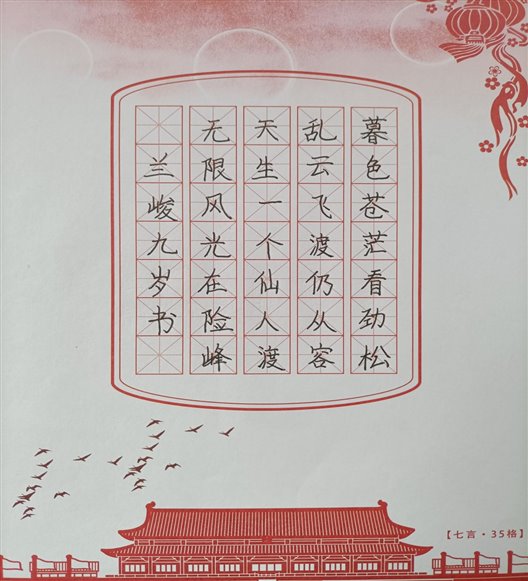 暮色苍茫看劲松
乱云飞渡仍从容
天生一个仙人渡
无限风光在险峰
兰峻九岁书
【七言·35格】